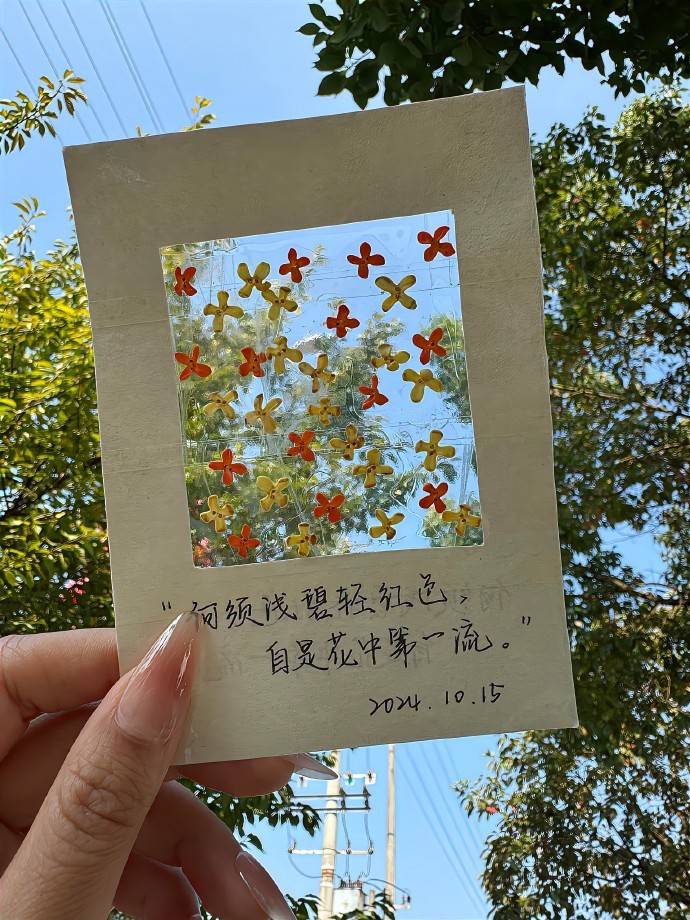 "何须浅碧轻红色，
自是花中第一流。"
2024.10.15